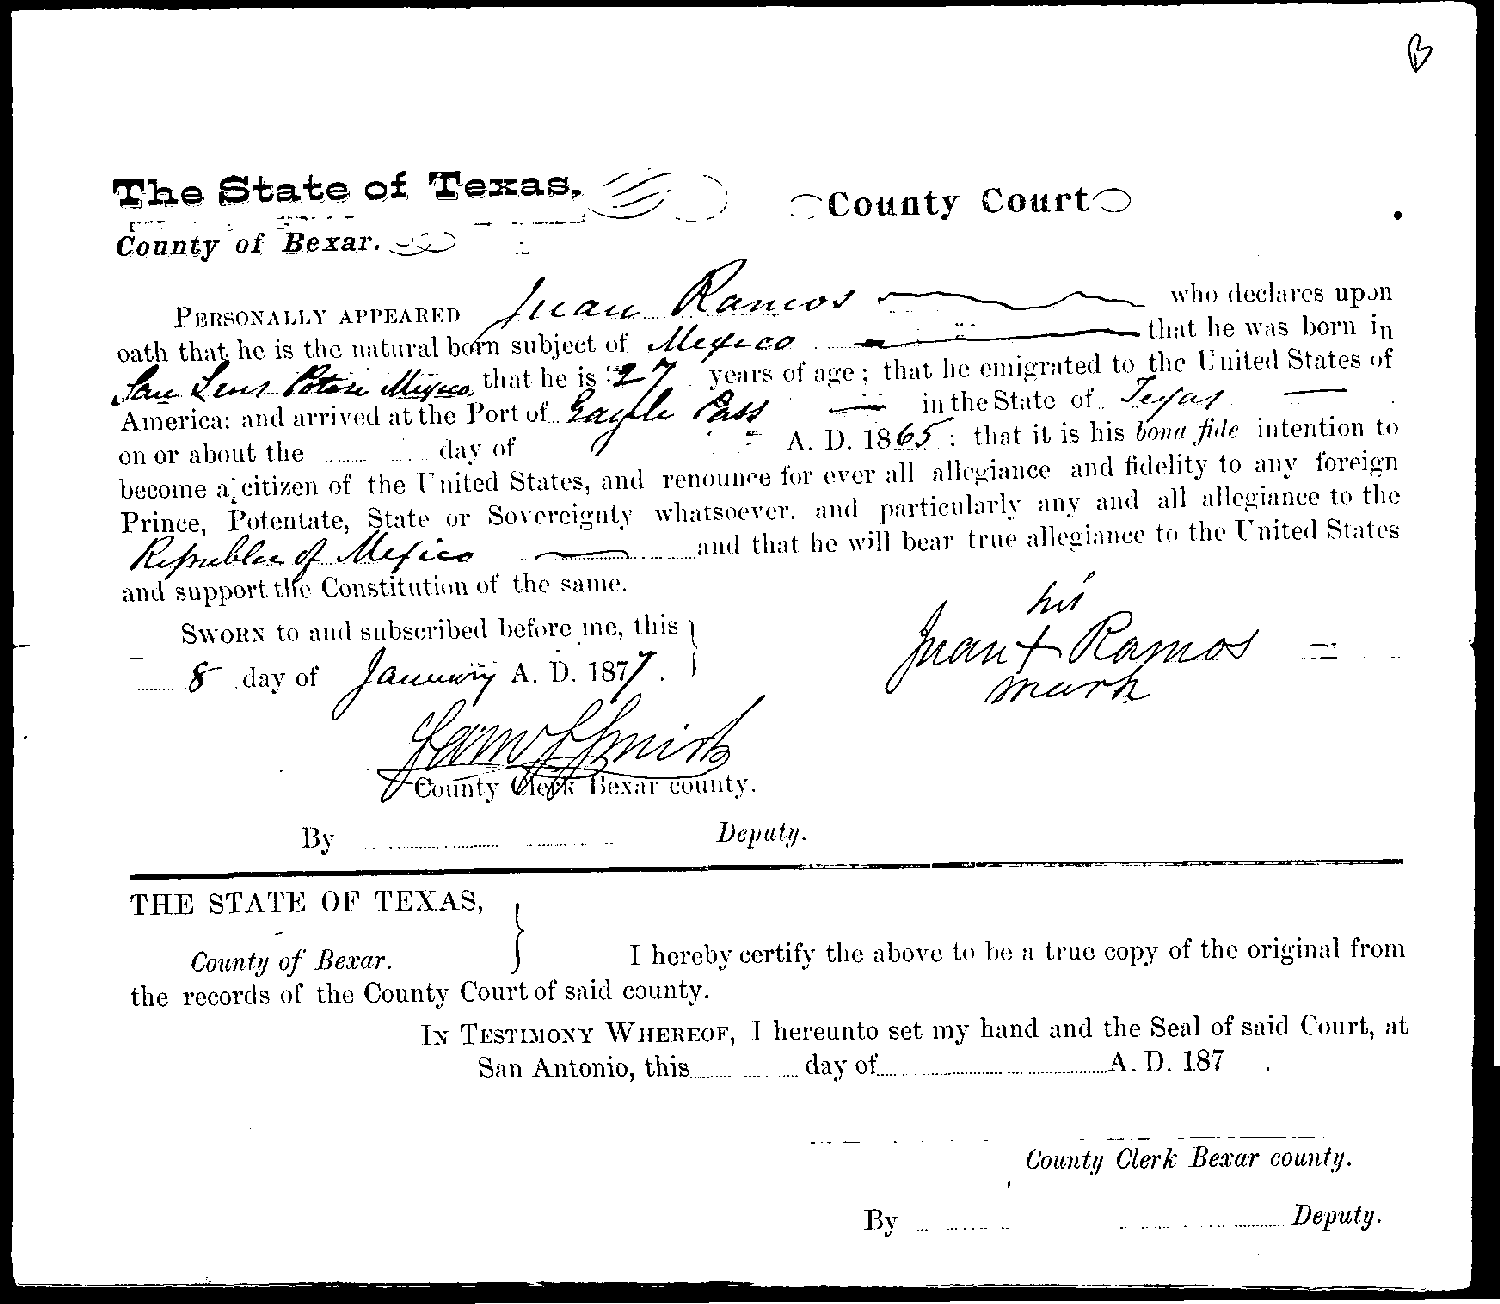 B
The State of Texas, County Court
County of Bexar.
PERSONALLY APPEARED Juan Ramos who declares upon
oath that he is the natural born subject of Mexico that he was born in
San Luis Potosi Mexico, that he is 27 years of age; that he emigrated to the United States of
America; and arrived at the Port of Eagle Pass in the State of Texas
on or about the day of A. D. 1865; that it is his bona fide intention to
become a citizen of the United States, and renounce for ever all allegiance and fidelity to any foreign
Prince, Potentate, State or Sovereignty whatsoever, and particularly any and all allegiance to the
Republic of Mexico and that he will bear true allegiance to the United States
and support the Constitution of the same.
SWORN to and subscribed before me, this
8 day of January A. D. 1877.
his
Juan + Ramos
mark
Sam S Smith
County Clerk Bexar county.
By Deputy.
THE STATE OF TEXAS,
County of Bexar. I hereby certify the above to be a true copy of the original from
the records of the County Court of said county.
IN TESTIMONY WHEREOF, I hereunto set my hand and the Seal of said Court, at
San Antonio, this day of A. D. 187 .
County Clerk Bexar county.
By Deputy.